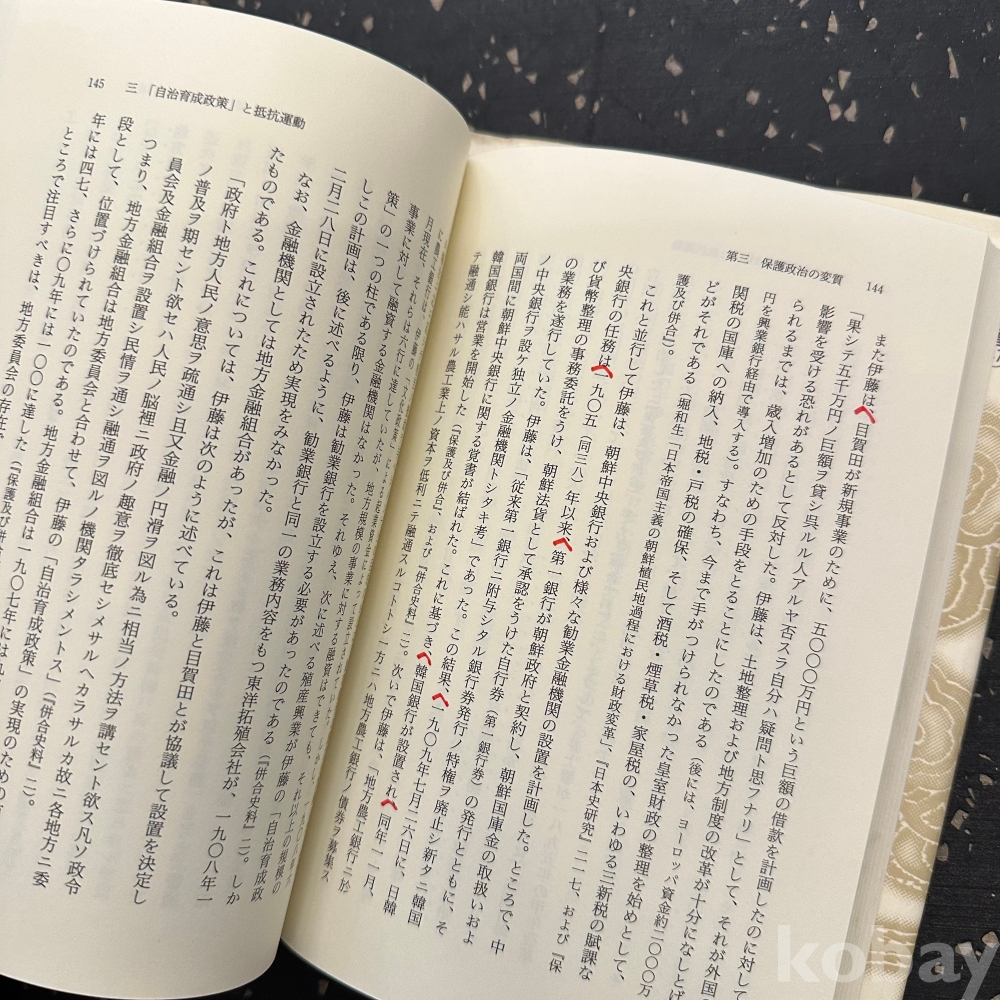 第三　保護政治の変質　144
また伊藤は、目賀田が新規事業のために、五〇〇〇万円という巨額の借款を計画したのに対して
「果シテ五千万円ノ巨額ヲ貸シ呉ルル人アルヤ否スラ自分ハ疑問ト思フナリ」として、それが外国
影響を受ける恐れがあるとして反対した。伊藤は、土地整理および地方制度の改革が十分になしとげ
られるまでは、歳入増加のための手段をとることにしたのである（後には、ヨーロッパ資金約二〇〇〇万
円を興業銀行経由で導入する）。すなわち、今まで手がつけられなかった皇室財政の整理を始めとして、
関税の国庫への納入、地税・戸税の確保、そして酒税・煙草税・家屋税の、いわゆる三新税の賦課な
どがそれである（堀和生「日本帝国主義の朝鮮植民地過程における財政変革」、『日本史研究』二一七、および『保
護及び併合』）。
これと並行して伊藤は、朝鮮中央銀行および様々な勧業金融機関の設置を計画した。ところで、中
央銀行の任務は、一九〇五（同三八）年以来、第一銀行が朝鮮政府と契約し、朝鮮国庫金の取扱いおよ
び貨幣整理の事務委託をうけ、朝鮮法貨として承認をうけた自行券（第一銀行券）の発行とともに、そ
の業務を遂行していた。伊藤は、「従来第一銀行ニ附与シタル銀行券発行ノ特権ヲ廃止シ新タニ韓国
ノ中央銀行ヲ設ケ独立ノ金融機関トシタキ考」であった。この結果、一九〇九年七月二六日に、日韓
両国間に朝鮮中央銀行に関する覚書が結ばれた。これに基づき、韓国銀行が設置され、同年一一月、
韓国銀行は営業を開始した（『保護及び併合』、および『併合史料』二）。次いで伊藤は、「地方農工銀行ニ於
テ融通シ能ハサル農工業上ノ資本ヲ低利ニテ融通スルコトトシ一方ニハ地方農工銀行ノ債券ヲ募集ス
145　三　「自治育成政策」と抵抗運動
月現在、それらは六行に達していたが、地方規模の事業に対する融資はできても、それ以上の規模の
事業に対して融資する金融機関はなかった。それゆえ、次に述べる殖産興業が伊藤の「自治育成政
策」の一つの柱である限り、伊藤は勧業銀行を設立する必要があったのである（『併合史料』二）。しか
しこの計画は、後に述べるように、勧業銀行と同一の業務内容をもつ東洋拓殖会社が、一九〇八年一
二月二八日に設立されたため実現をみなかった。
なお、金融機関としては地方金融組合があったが、これは伊藤と目賀田とが協議して設置を決定し
たものである。これについては、伊藤は次のように述べている。
「政府ト地方人民ノ意思ヲ疏通シ且又金融ノ円滑ヲ図ル為ニ相当ノ方法ヲ講セント欲ス凡ソ政令
ノ普及ヲ期セント欲セハ人民ノ脳裡ニ政府ノ趣意ヲ徹底セシメサルヘカラサルカ故ニ各地方ニ委
員会及金融組合ヲ設置シ民情ヲ通シ融通ヲ図ルノ機関タラシメントス」（『併合史料』二）。
つまり、地方金融組合は地方委員会と合わせて、伊藤の「自治育成政策」の実現のための
段として、位置づけられていたのである。地方金融組合は一九〇七年には九
年には四七、さらに〇九年には一〇〇に達した（『保護及び併合
ところで注目すべきは、地方委員会の存在
kobay